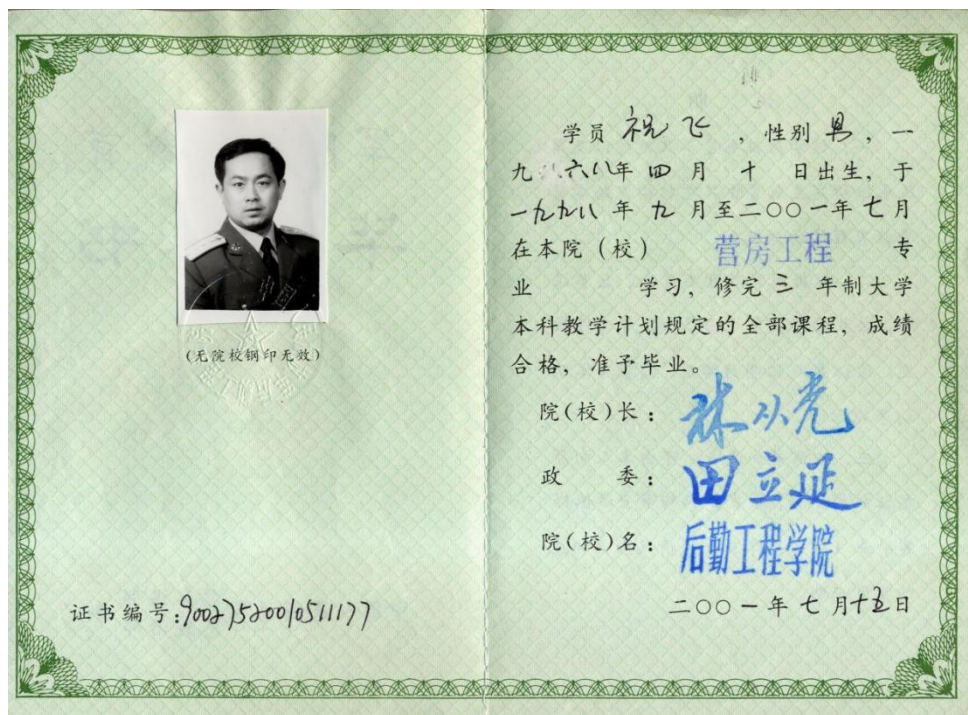 (无院校钢印无效)
证书编号:90027520010511177
学员 祝飞 ,性别 男,一
九六八年 四 月 十 日出生,于
一九九八 年 九 月至二〇〇一年七月
在本院(校) 营房工程 专
业 学习,修完 三 年制大学
本科教学计划规定的全部课程,成绩
合格,准予毕业。
院(校)长: 林从亮
政 委: 田立延
院(校)名: 后勤工程学院
二〇〇一年 七 月十五日